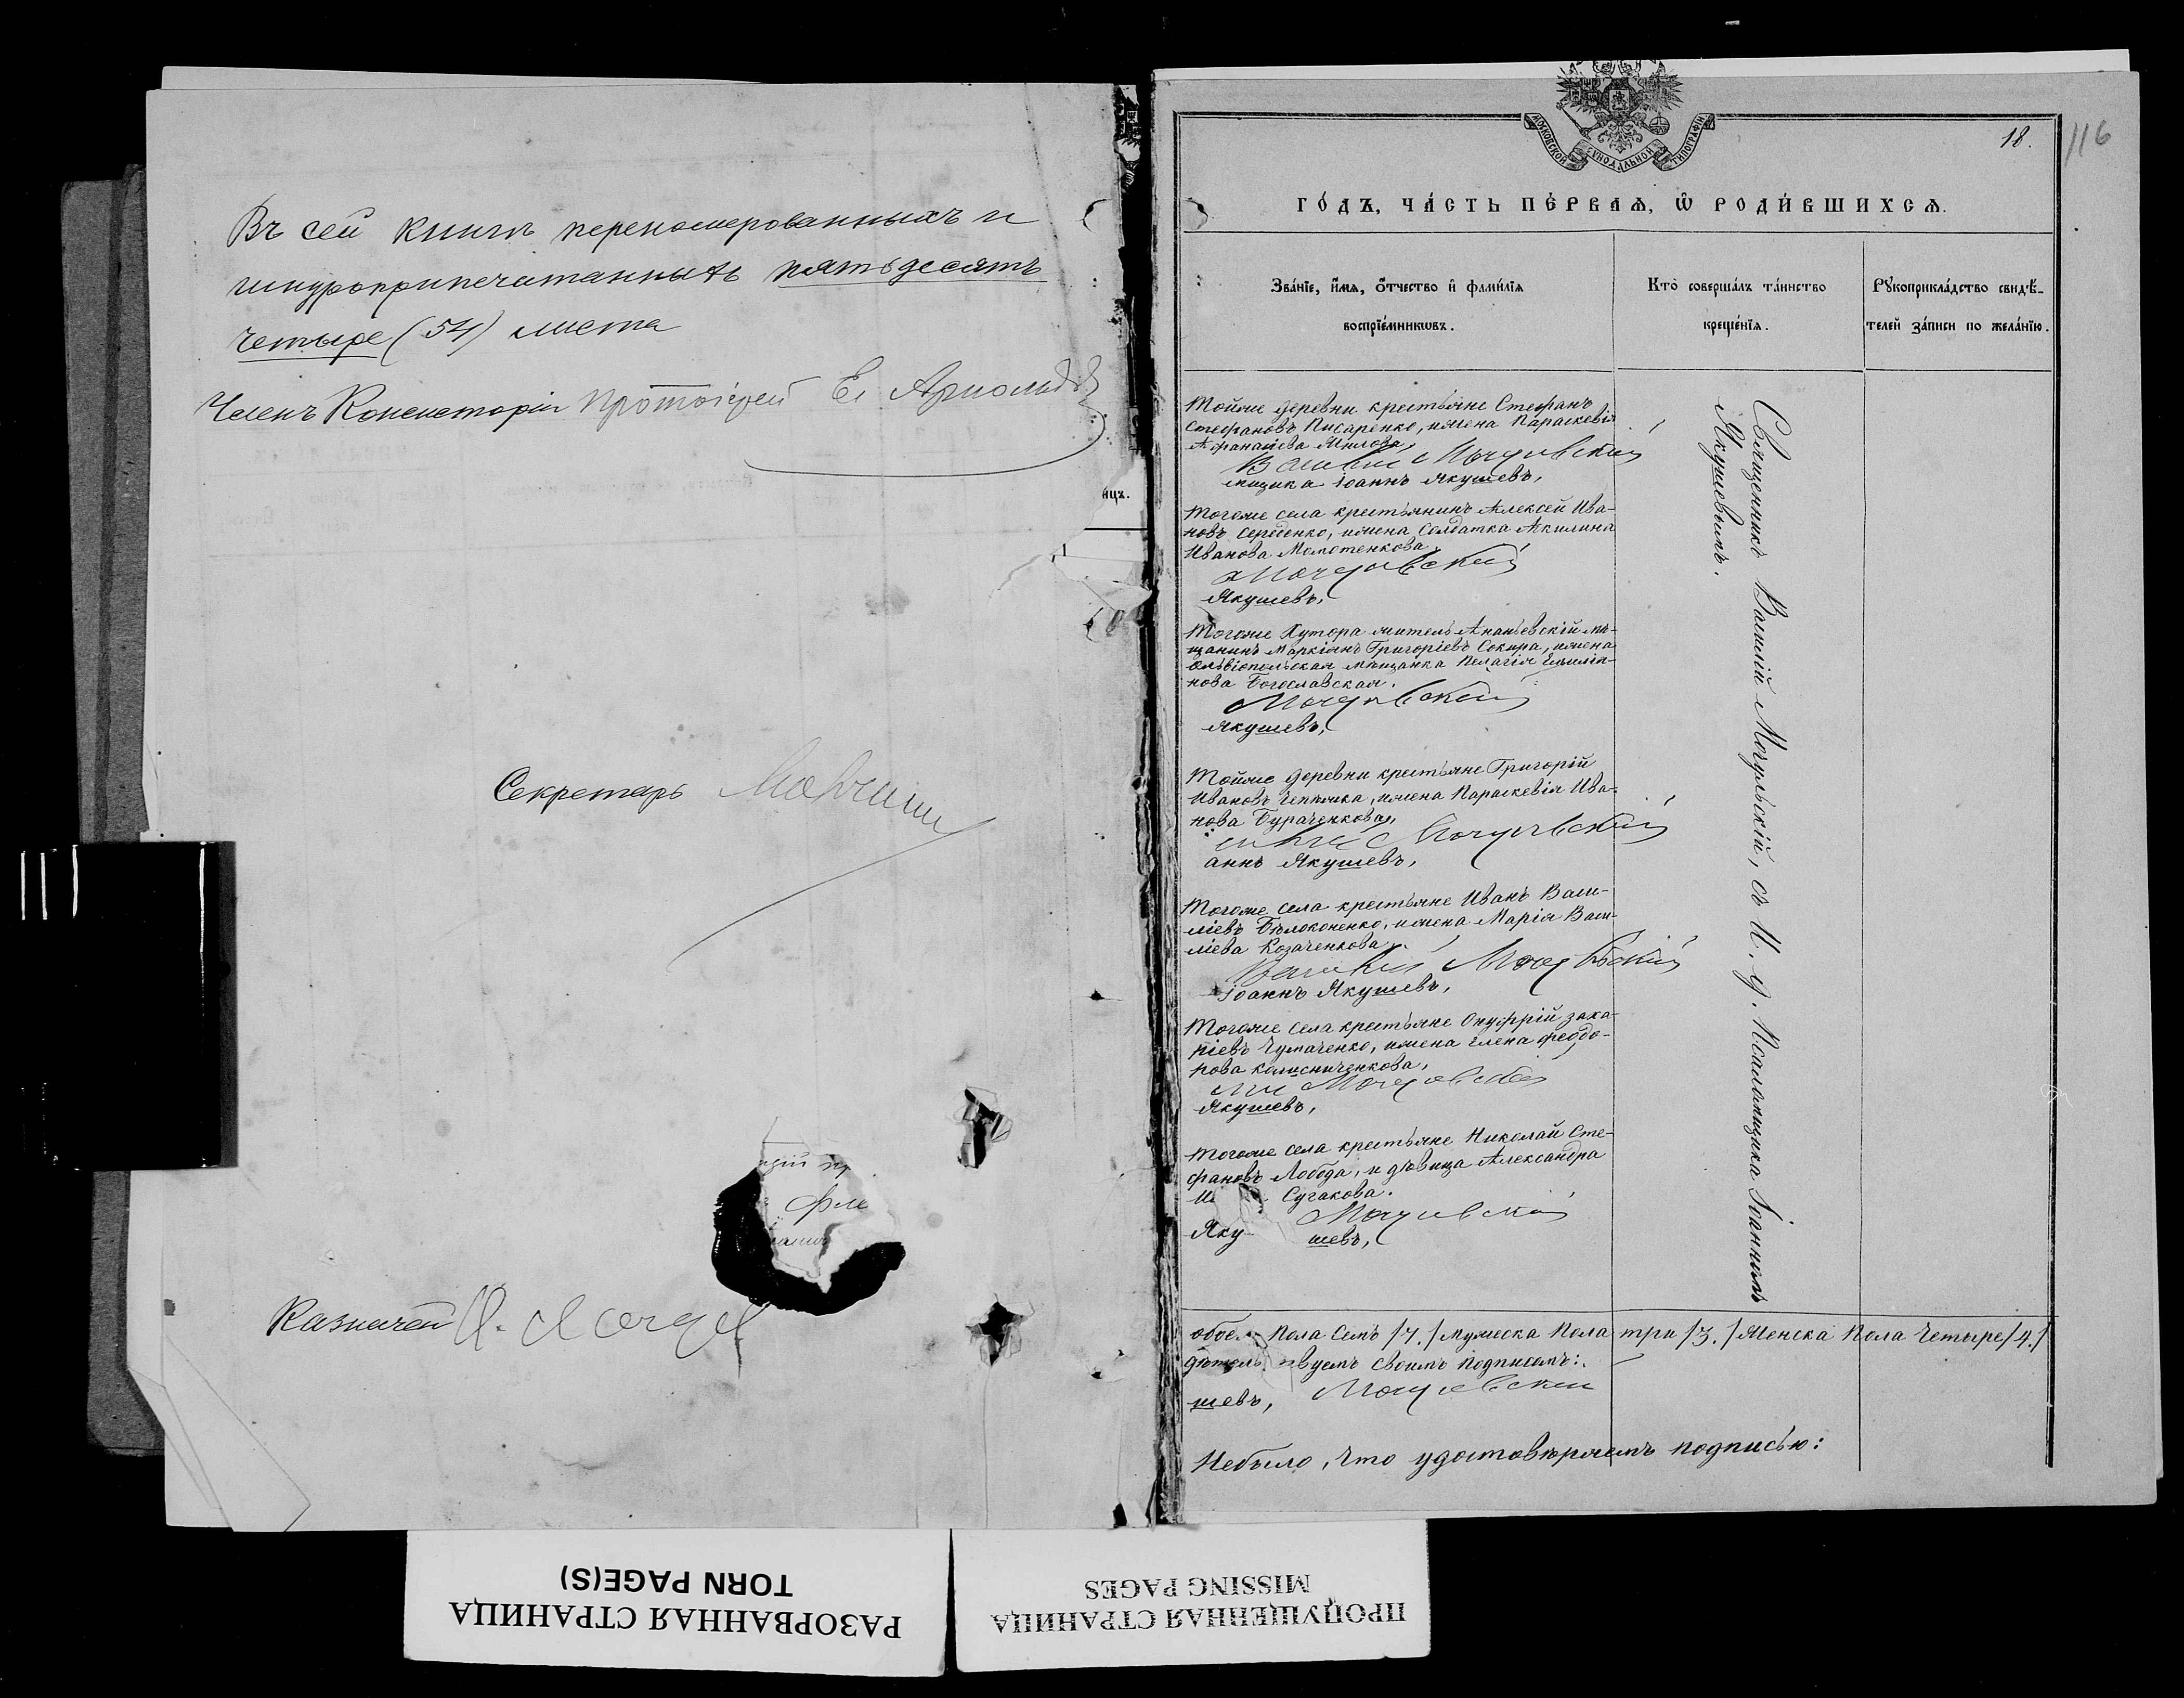 Въ сей книгѣ перенумерованныхъ и
шнуроприпечатанныхъ пятьдесятъ
четыре (54) листа
Членъ Консисторіи Протоіерей Е. Арнольдовъ
Секретарь
Казначей
ицъ.
МОСКОВСКОЙ СѴНОДАЛЬНОЙ ТИПОГРАФІИ
18.
116
ГО́ДЪ, ЧА́СТЬ ПЕ́РВАѦ, Ѿ РОДИ́ВШИХСѦ.
Зва́нїе, и҆́мѧ, ѻ҆́тчество и҆ фами́лїѧ
воспрїе́мникѡвъ.
Кто̀ соверша́лъ та́инство
креще́нїѧ.
Рꙋкоприкла́дство свидѣ́-
телей за́писи по жела́нїю.
Тойже деревни крестьяне Стефанъ
Стефановъ Писаренко, и жена Параскевія
Афанасіева Милова,
Василій Мочульскій
мщика Іоаннъ Якушевъ,
Тогоже села крестьянинъ Алексей Ива-
новъ Середенко, и жена Солдатка Акилина
Иванова Молотенкова.
Мочульскій
Якушевъ,
Тогоже Хутора житель Ананьевскій мѣ-
щанинъ Маркіянъ Григоріевъ Сокира, и жена
Ольвіопольская мѣщанка Пелагія Емилія-
нова Богославская.
Мочульскій
Якушевъ,
Тойже деревни крестьяне Григорій
Ивановъ Чепижка, и жена Параскевія Ива-
нова Бураченкова,
Мочульскій
аннъ Якушевъ,
Тогоже села крестьяне Иванъ Васи-
ліевъ Бѣлоконенко, и жена Марія Васи-
ліева Козаченкова.
Василій Мочульскій
Іоаннъ Якушевъ,
Тогоже села крестьяне Онуфрій Заха-
ріевъ Чумаченко, и жена Елена Феодо-
рова Колисниченкова,
Мочульскій
Якушевъ,
Тогоже села крестьяне Николай Сте-
фановъ Лобода, и дѣвица Александра
Сугакова.
Мочульскій
Якушевъ,
Священникъ Василій Мочульскій, съ И. д. Псаломщика Іоанномъ
Якушевымъ.
обоего Пола Семь /7./ Мужеска Пола три /3./ Женска Пола Четыре /4./
дѣтельствуемъ своимъ подписомъ:
шевъ, Мочульскій
Небыло, что удостовѣряемъ подписью:
РАЗОРВАННАЯ СТРАНИЦА
TORN PAGE(S)
ПРОПУЩЕННАЯ СТРАНИЦА
MISSING PAGES